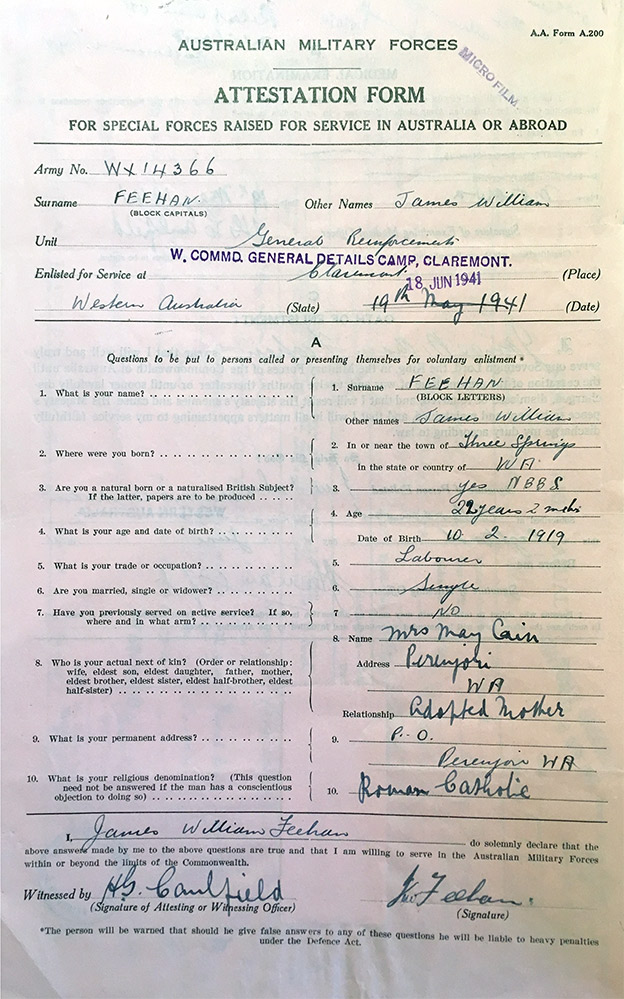 A.A. Form A.200
AUSTRALIAN MILITARY FORCES
MICRO FILM.
ATTESTATION FORM
FOR SPECIAL FORCES RAISED FOR SERVICE IN AUSTRALIA OR ABROAD
Army No. WX14366
Surname FEEHAN. Other Names James William
(BLOCK CAPITALS)
Unit General Reinforcements
W. COMMD. GENERAL DETAILS CAMP, CLAREMONT.
Enlisted for Service at Claremont. (Place)
18 JUN 1941
Western Australia (State) 19th May 1941 (Date)
A
Questions to be put to persons called or presenting themselves for voluntary enlistment*
1. What is your name? 1. Surname FEEHAN
(BLOCK LETTERS)
Other names James William
2. Where were you born? 2. In or near the town of Three Springs
in the state or country of WA
3. Are you a natural born or a naturalised British Subject? If the latter, papers are to be produced 3. yes NBBS
4. What is your age and date of birth? 4. Age 22 years 2 mths
Date of Birth 10. 2. 1919
5. What is your trade or occupation? 5. Labourer
6. Are you married, single or widower? 6. Single
7. Have you previously served on active service? If so, where and in what arm? 7 NO
8. Who is your actual next of kin? (Order or relationship: wife, eldest son, eldest daughter, father, mother, eldest brother, eldest sister, eldest half-brother, eldest half-sister) 8. Name Mrs May Cain
Address Perenjori
WA
Relationship Adopted Mother
9. What is your permanent address? 9. P.O.
Perenjori WA
10. What is your religious denomination? (This question need not be answered if the man has a conscientious objection to doing so) 10. Roman Catholic
I, James William Feehan do solemnly declare that the
above answers made by me to the above questions are true and that I am willing to serve in the Australian Military Forces
within or beyond the limits of the Commonwealth.
Witnessed by HG. Caulfield JW Feehan.
(Signature of Attesting or Witnessing Officer) (Signature)
*The person will be warned that should he give false answers to any of these questions he will be liable to heavy penalties
under the Defence Act.